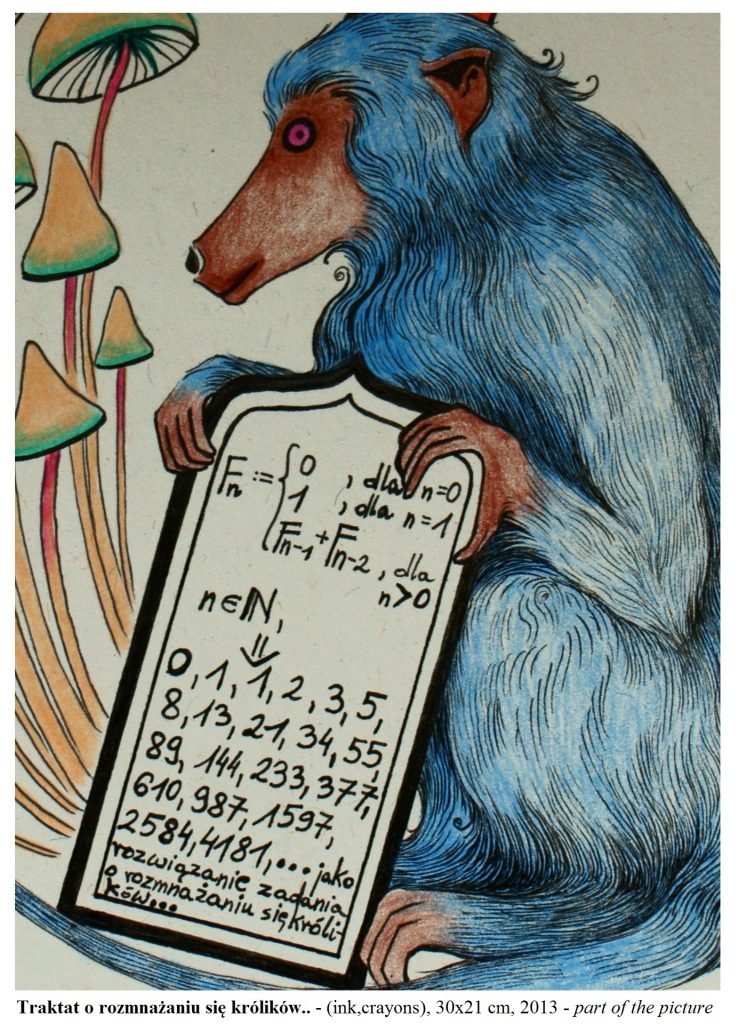 Fn := { 0 , dla n=0
1 , dla n=1
Fn-1 + Fn-2 , dla
n>0
n∈ℕ,
⇓
0, 1, 1, 2, 3, 5,
8, 13, 21, 34, 55,
89, 144, 233, 377,
610, 987, 1597,
2584, 4181, ... jako
rozwiązanie zadania
o rozmnażaniu się króli-
ków...
Traktat o rozmnażaniu się królików.. - (ink,crayons), 30x21 cm, 2013 - part of the picture